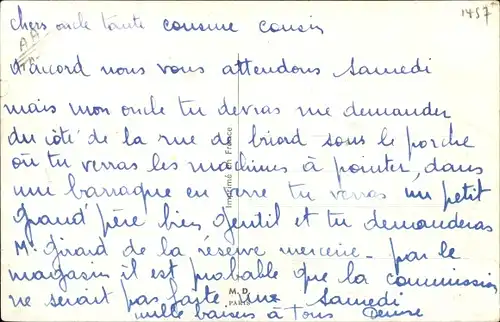 1457
chers oncle tante cousine cousin
d'accord nous vous attendons Samedi
mais mon oncle tu devras me demander
du côté de la rue de briard sous le porche
où tu verras les machines à pointer, dans
une barraque en verre tu verras un petit
grand'père bien gentil et tu demanderas
M. Girard de la réserve mercerie - par le
magasin il est probable que la commission
ne serait pas faite. Samedi
mille baisers à Tous Denise
Imprimé en France
M.D.
PARIS